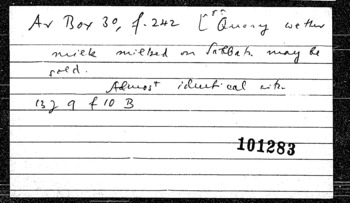 Ar Box 30, f. 242 [ Query wether
milk milked on Sabbath may be
sold.
Almost identical with
13 J 9 f 10 B
101283